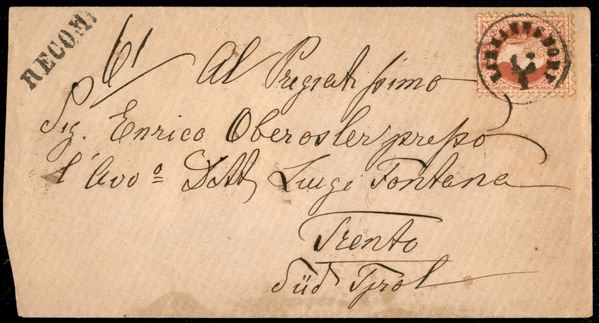 RECOM.
61
Al Pregiatissimo
Sig. Enrico Oberosler prepo
l'Avvo Dott Luigi Fontana
Trento
Süd Tyrol
HERMANNSDORF